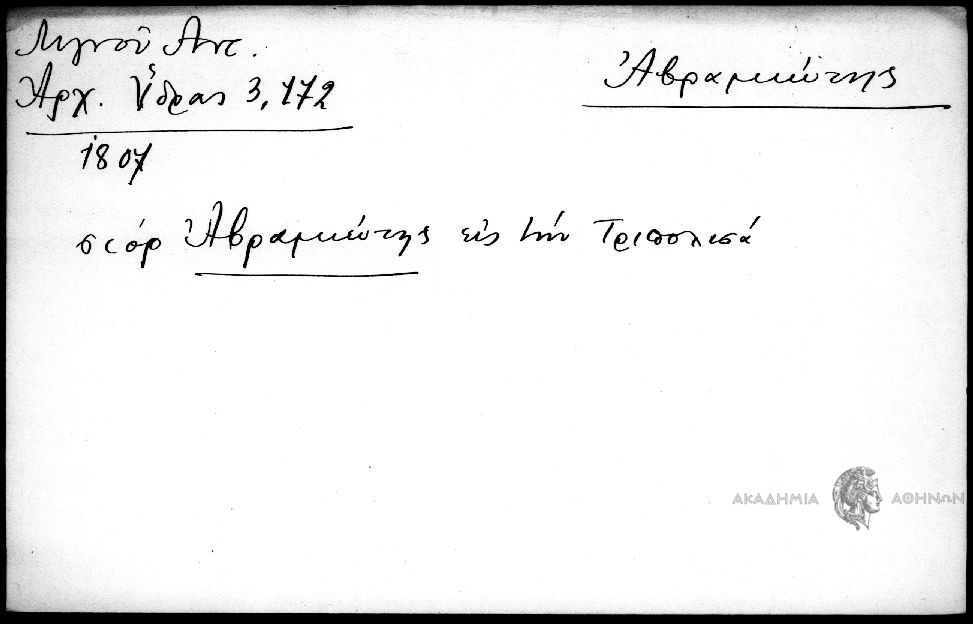 Λιγνοῦ Αντ.
Ἀβραμιώτης
Αρχ. Ὕδρας 3, 172
1807
σιόρ Ἀβραμιώτης εἰς τήν Τριπολιτσά
ΑΚΑΔΗΜΙΑ ΑΘΗΝΩΝ